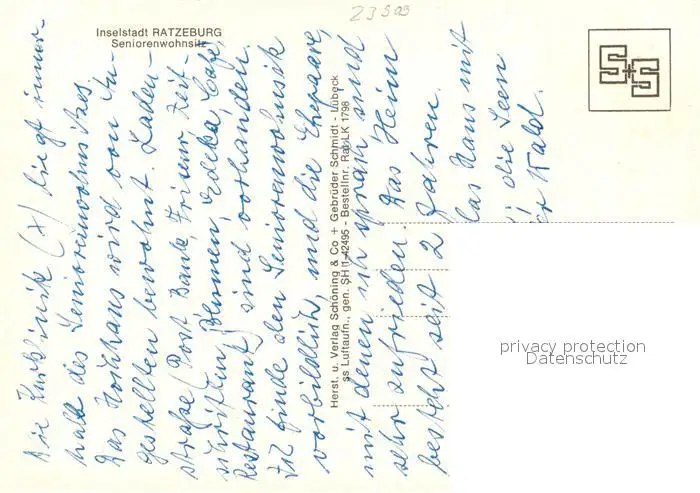 23509
Inselstadt RATZEBURG
Seniorenwohnsitz
Die Kurklinik (x) liegt inner-
halb des Seniorenwohnsitzes.
Das Hochhaus wird von An-
gestellten bewohnt. Laden-
straße (Post Bank, Friseur Zeit-
schriften, Blumen, Edeka, Café,
Restaurant) sind vorhanden.
Ich finde den Seniorenwohnsitz
vorbildlich, und die Ehepaare,
mit denen ich sprach sind
sehr zufrieden. Das Heim
besteht seit 2 Jahren.
das Haus mit
die Seen
er Wald.
Herst. u. Verlag Schöning & Co + Gebrüder Schmidt - Lübeck
ss Luftaufn., gen. SH 11-42495 - Bestellnr. Ra LK 1798
S+S
privacy protection
Datenschutz